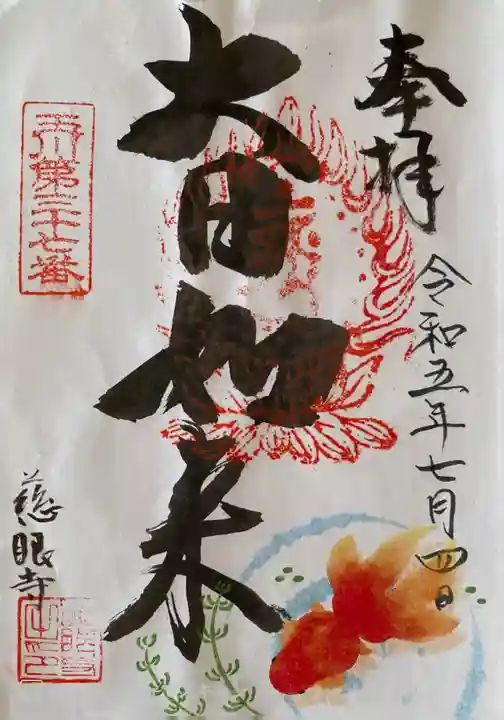 奉拝
令和五年七月四日
大日如来
第三十七番
慈眼寺